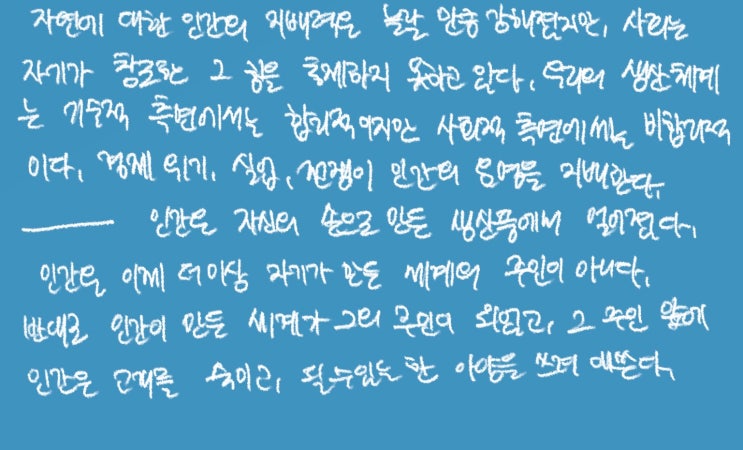 자연에 대한 인간의 지배력은 놀랄 만큼 강해졌지만, 사회는
자기가 창조한 그 힘을 통제하지 못하고 있다. 우리의 생산체계
는 기술적 측면에서는 합리적이지만 사회적 측면에서는 비합리적
이다. 경제 위기, 실업, 전쟁이 인간의 운명을 지배한다.
인간은 자신의 손으로 만든 생산품에서 멀어졌다.
인간은 이제 더이상 자기가 만든 세계의 주인이 아니다.
반대로 인간이 만든 세계가 그의 주인이 되었고, 그 주인 앞에
인간은 고개를 숙이고, 될수있는 한 아양을 쓰려 애쓴다.